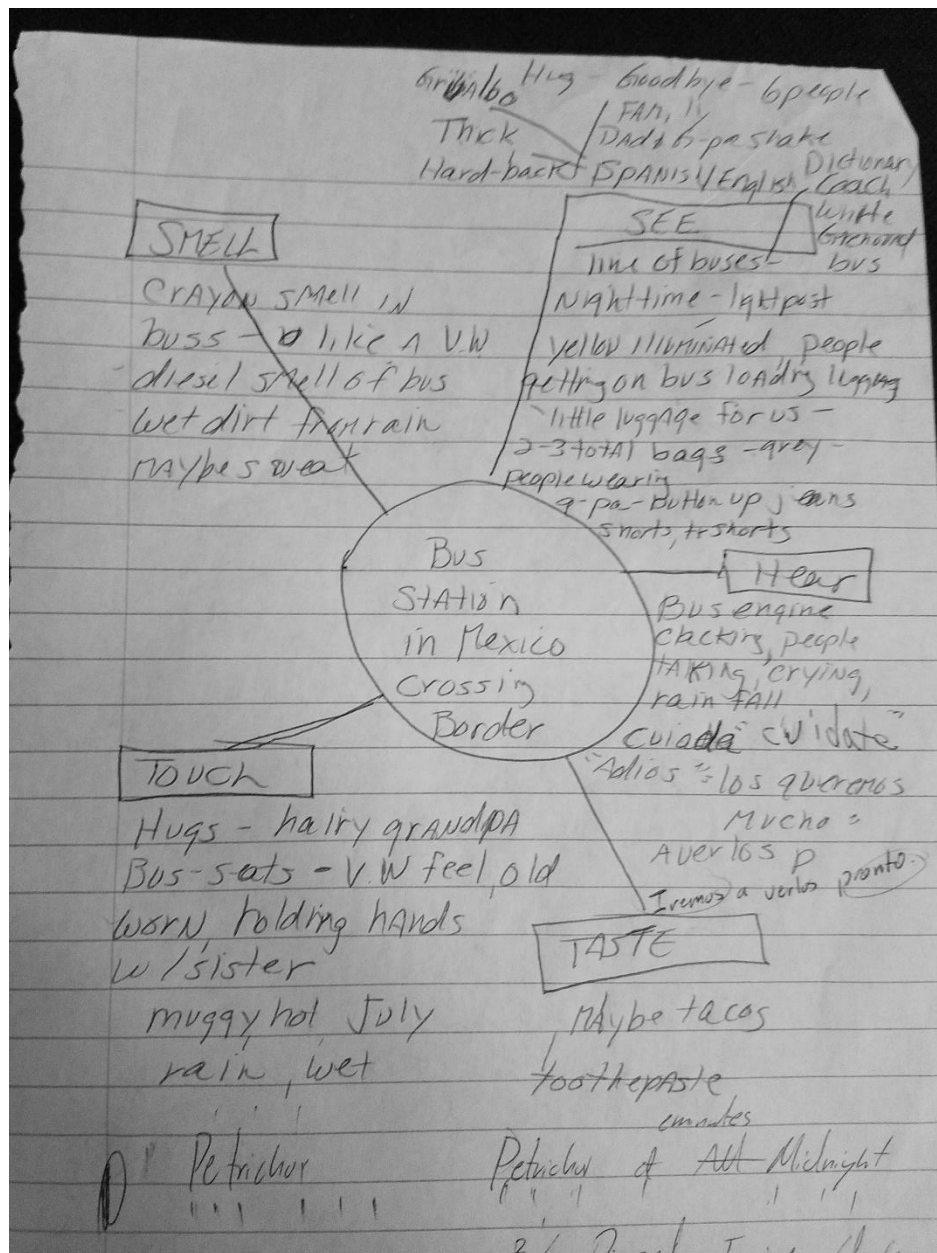 Hug - Goodbye - 6 people
Thick
Hard-back
SPANISH/English Dictionary
Coach
White
bus
SMELL
CRAYON SMELL IN
buss - like A V.W
diesel smell of bus
wet dirt from rain
MAYbe sweat
SEE
line of buses-
Nighttime - lghtpost
yellow IllumiNAted, people
getting on bus loAding
little luggage for us -
2-3 total bags - grey -
people wearing
g-pa- button up jeans
shorts, t-shorts
Bus
StAtion
in Mexico
Crossing
Border
Hear
Bus engine
clacking, people
tAlking, crying,
rain fAll
"cuidate"
"Adios" "los queremos
Mucho"
A verlos p
Iremos a verlos pronto.
TOUCH
Hugs - hairy grANdpA
Bus-seats - V.W feel, old
worn, holding hANds
w/sister
muggy hot July
rain, wet
TASTE
MAybe tacos
toothepAste
Petrichor
Petrichor of Midnight